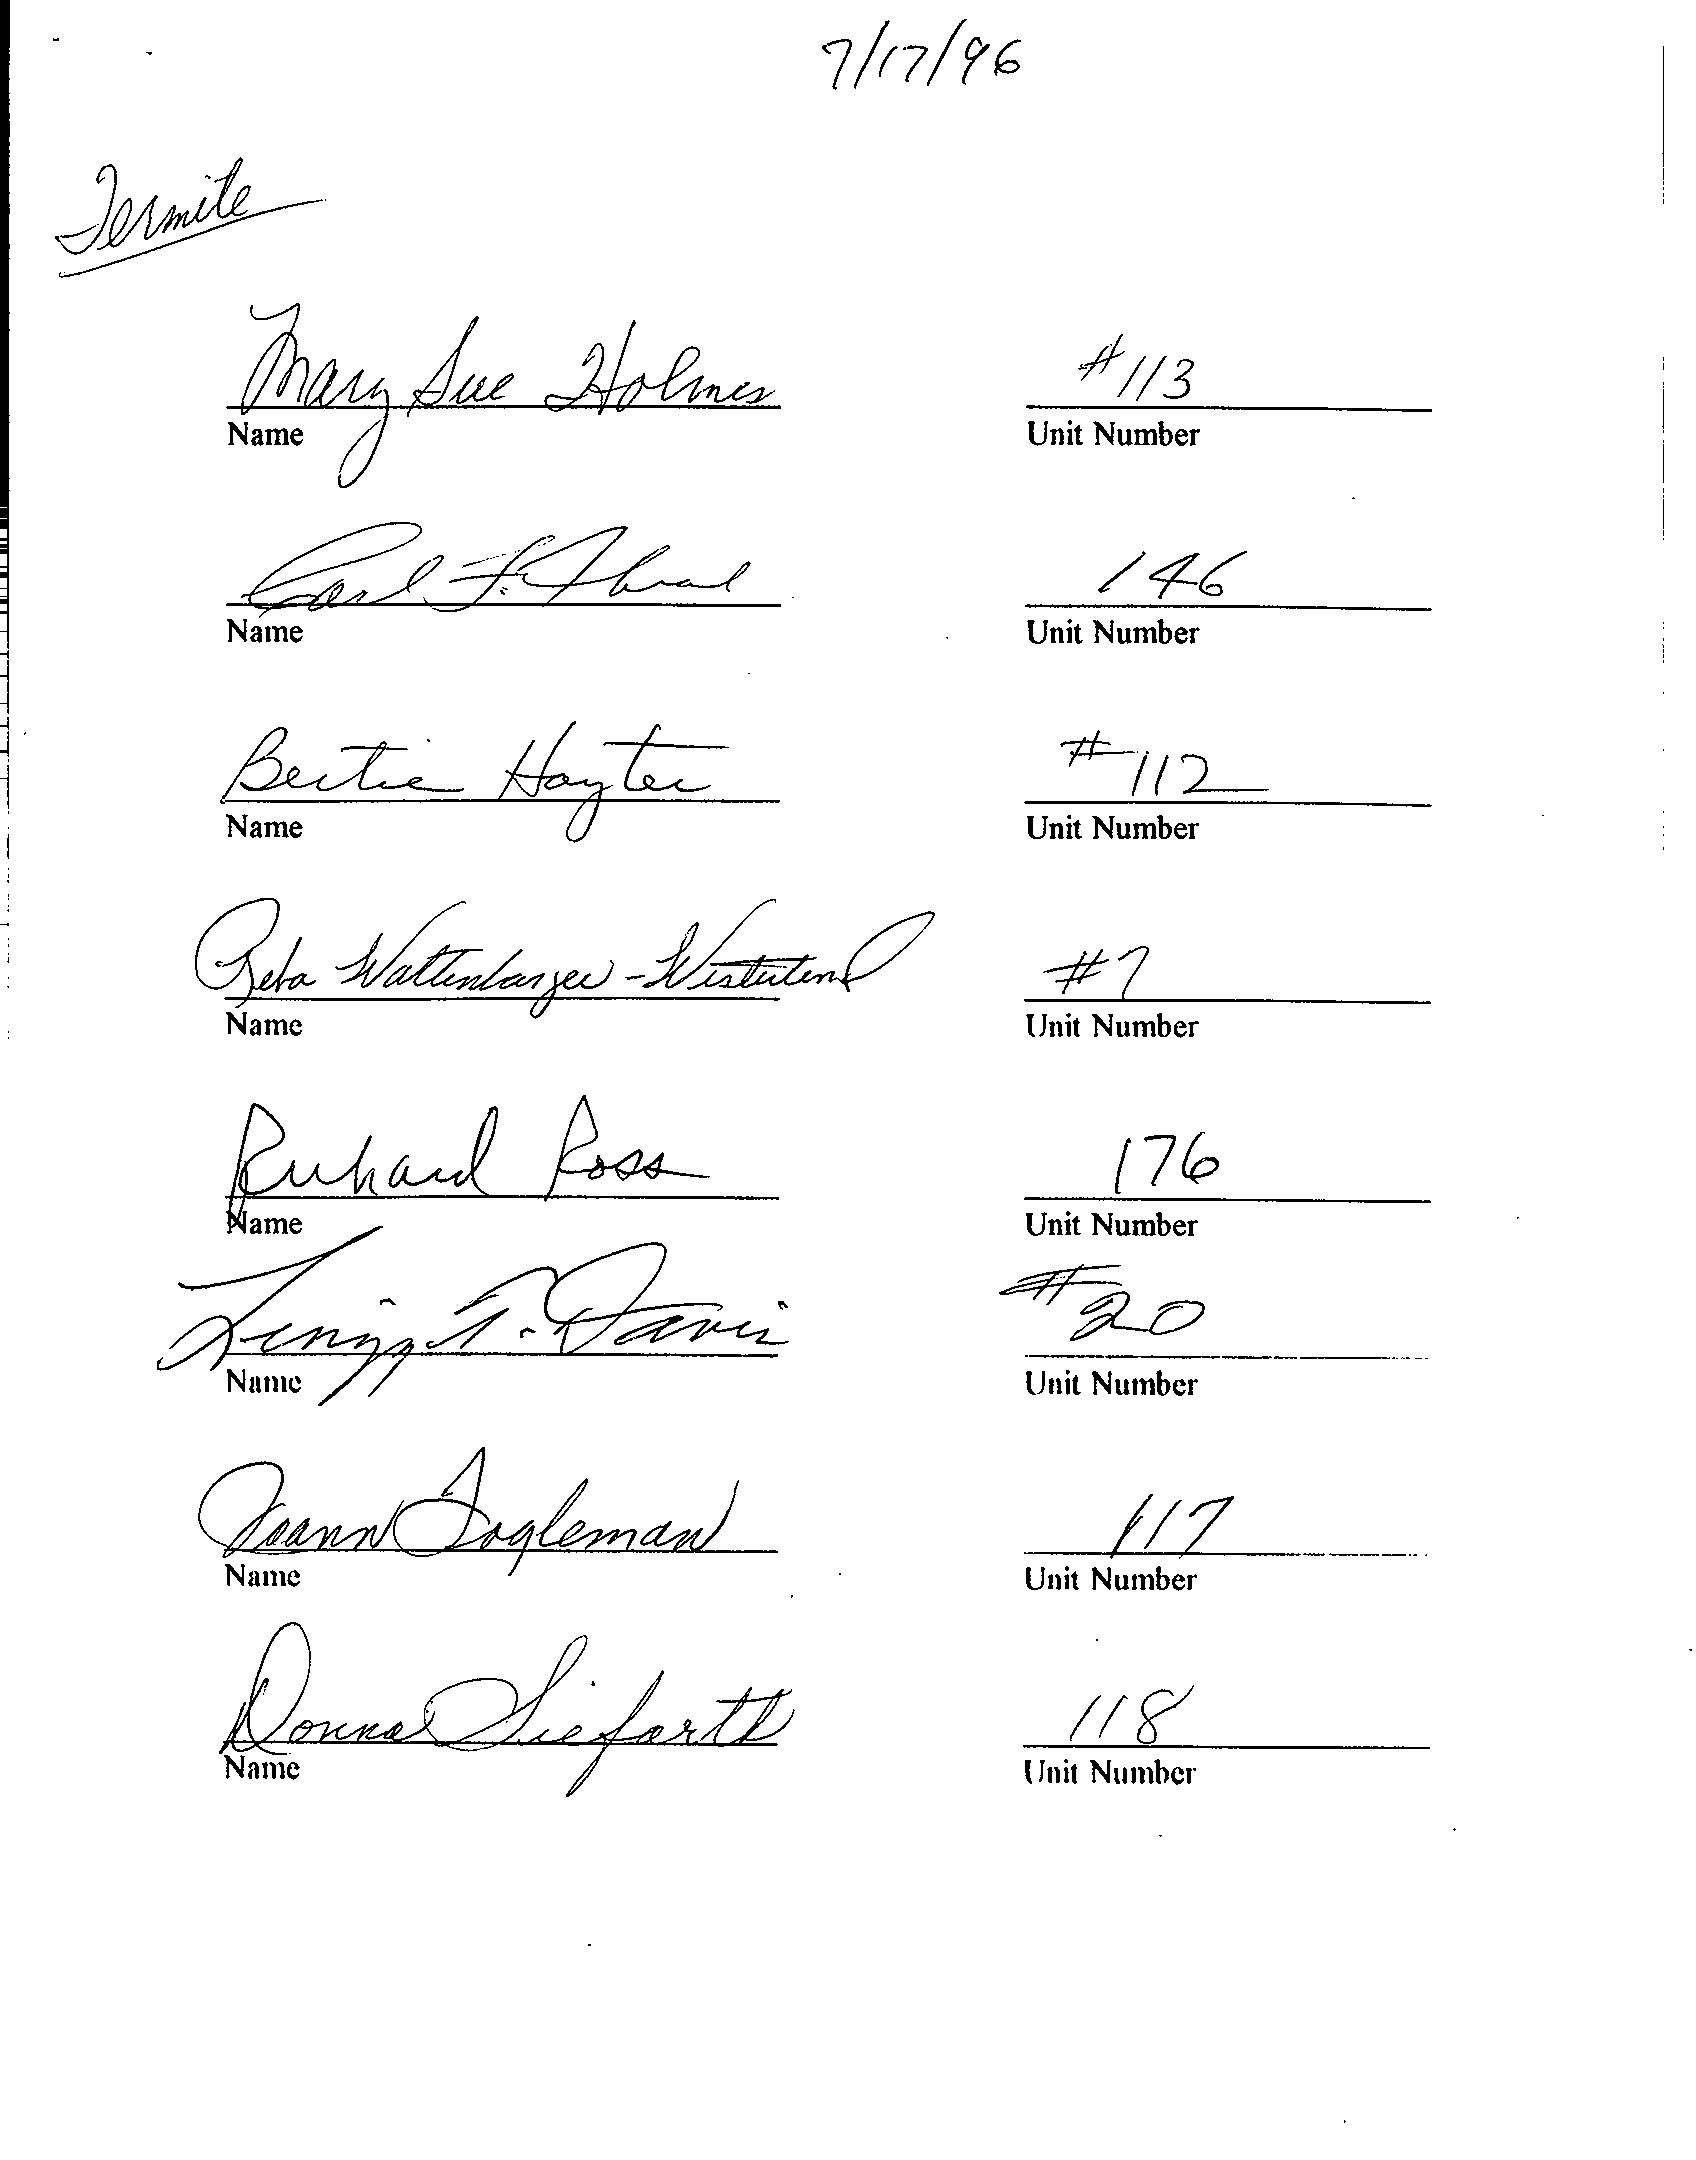 7/17/96
Termite
Mary Sue Holmes #113
Name Unit Number
Carl F. 146
Name Unit Number
Bertie Hayter #112
Name Unit Number
Reba Wattenbarger - #7
Name Unit Number
Richard Ross 176
Name Unit Number
T. Davis #20
Name Unit Number
Joann Fogleman 117
Name Unit Number
Donna Siefarth 118
Name Unit Number